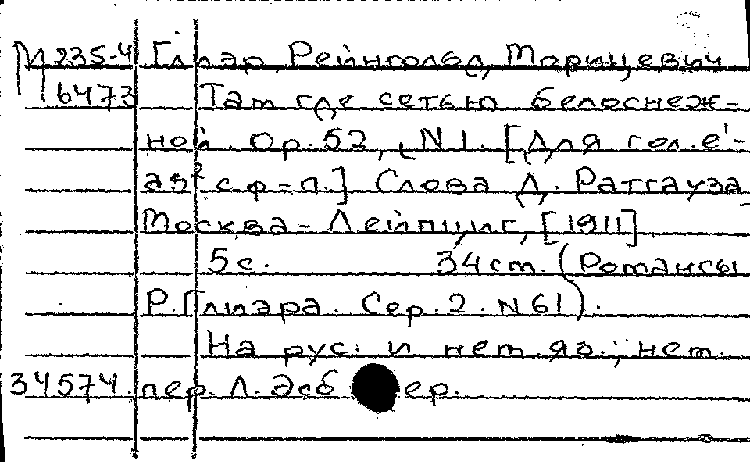 М 235-4 Глиэр, Рейнгольд Морицевич
6473 Там где сетью белоснеж-
ной. Op. 52, N 1. [Для гол. e'-
as² с ф-п.] Слова Д. Ратгауза
Москва - Лейпциг, [1911]
5 с. 34 см. (Романсы
Р. Глиэра. Сер. 2. N 61).
На рус. и нем. яз.; нем.
34574. пер. Л. Эсб ер.